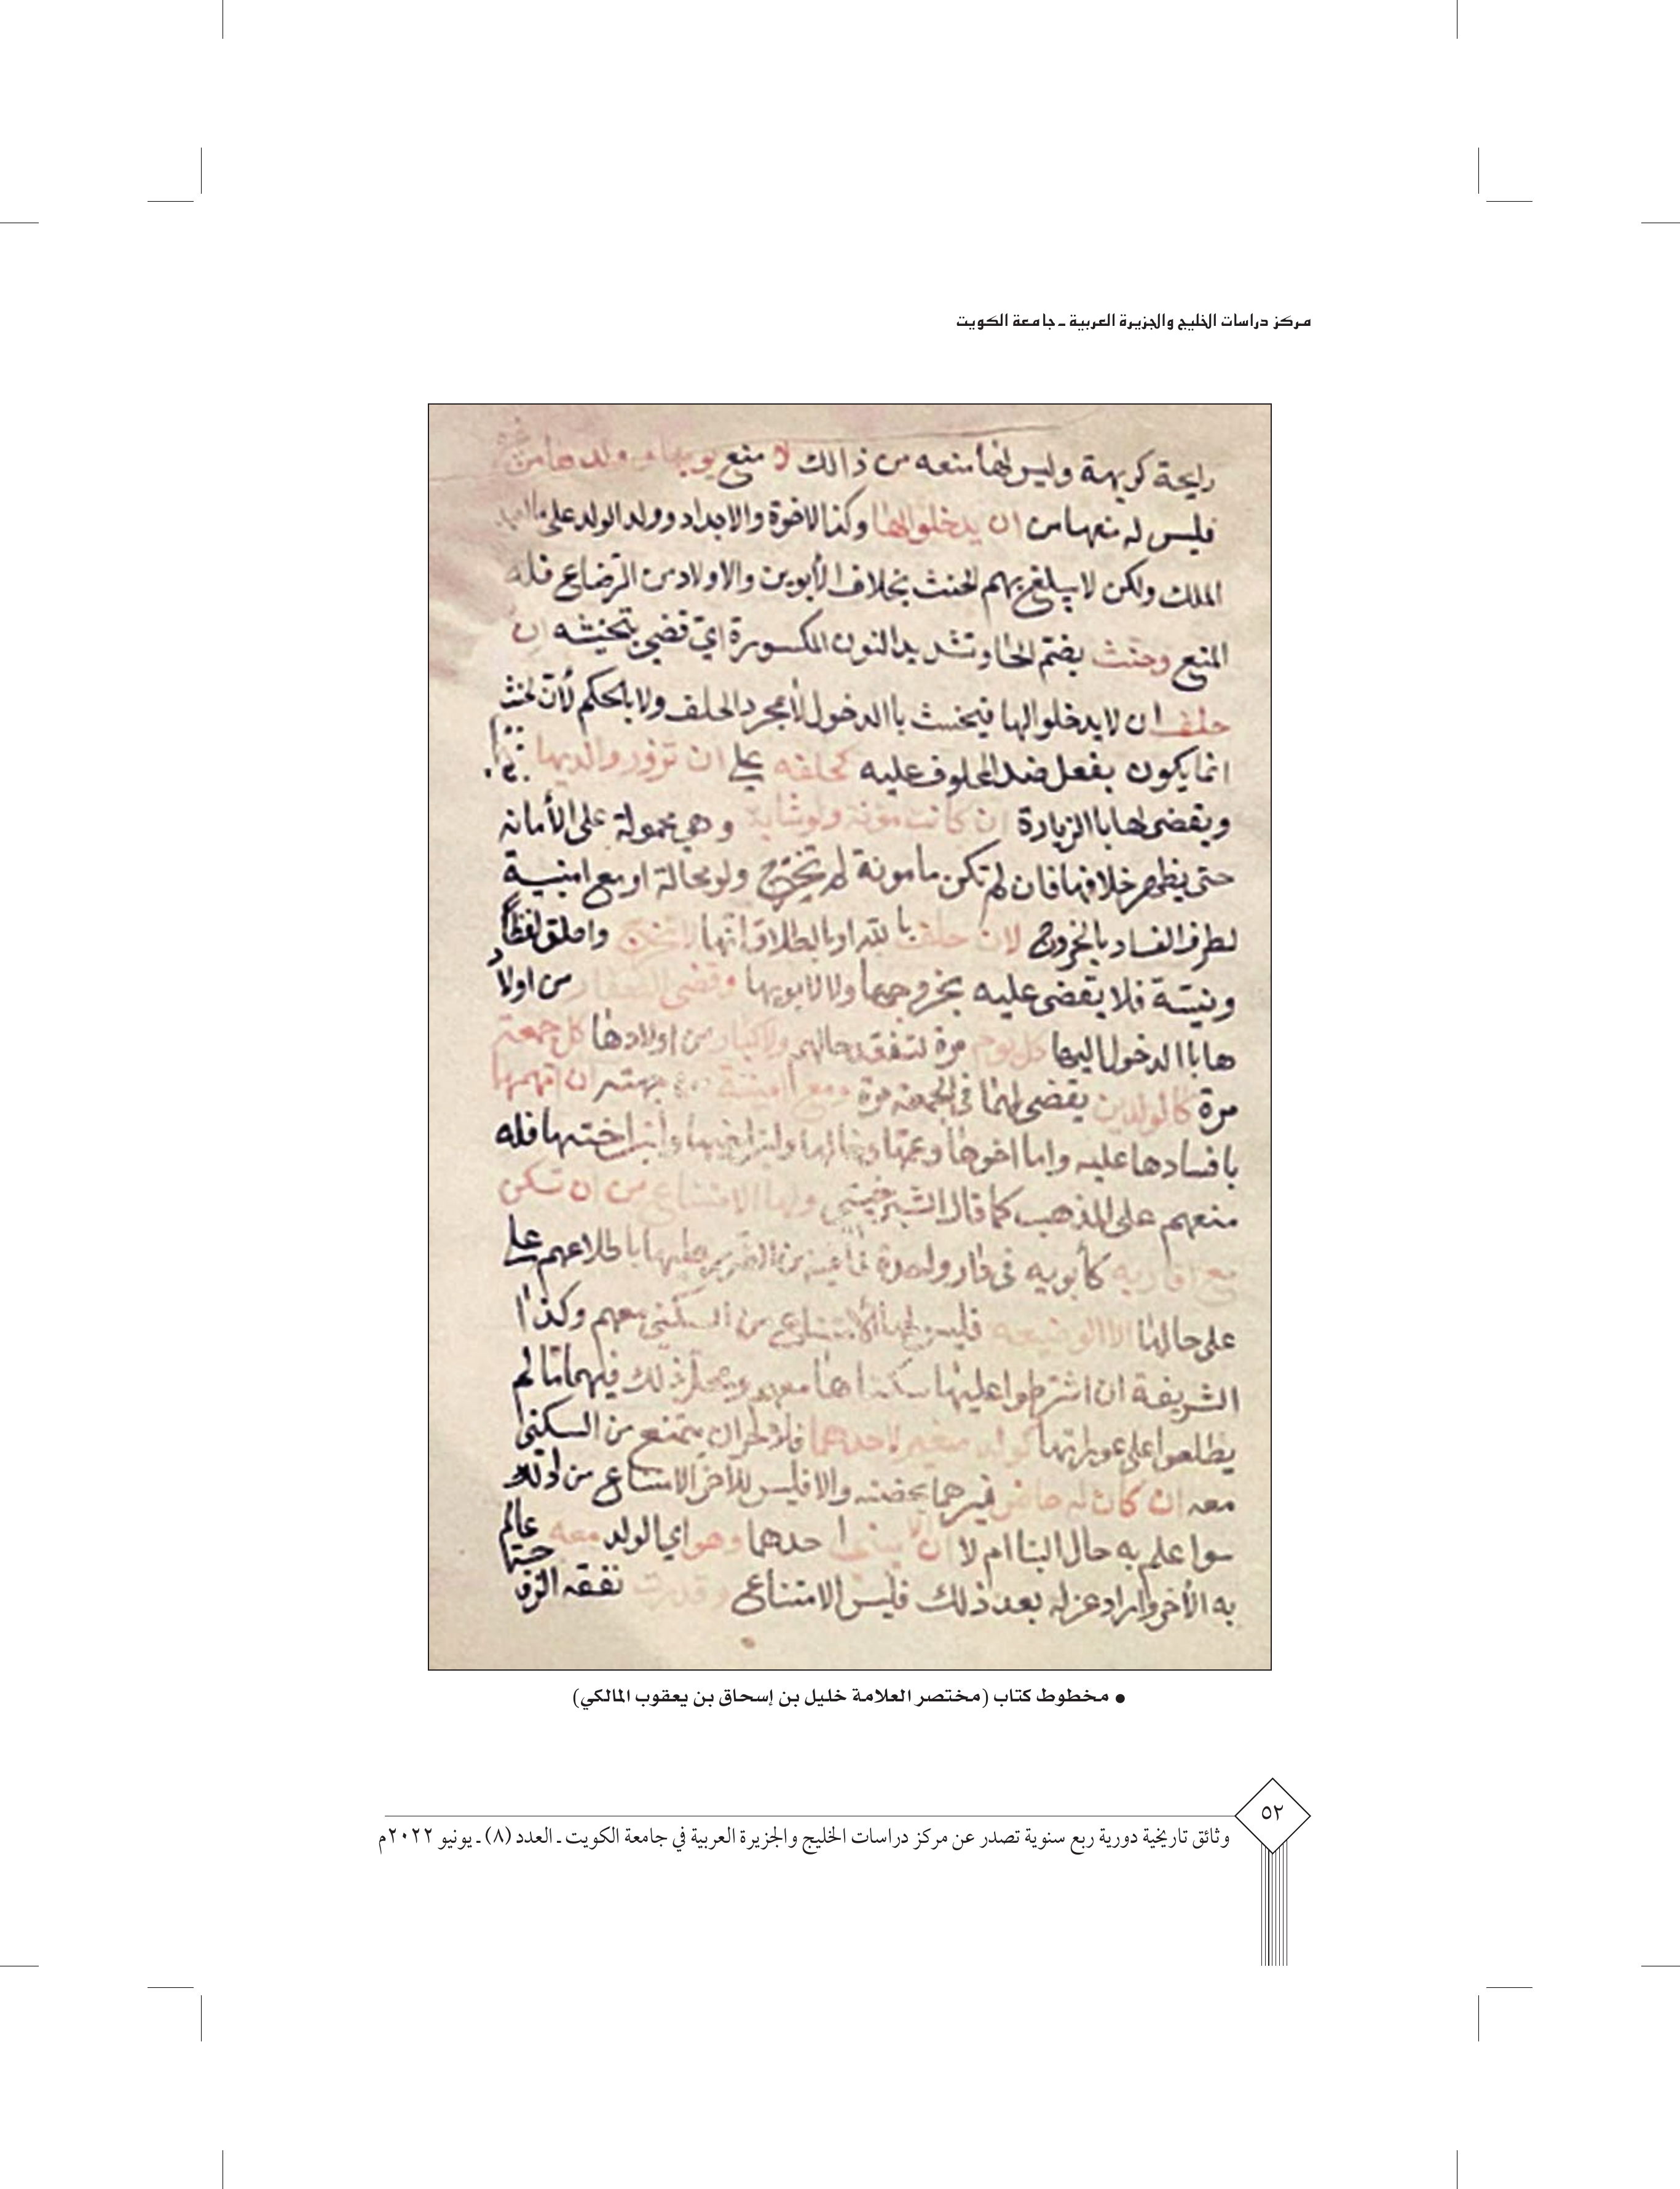 مركز دراسات الخليج والجزيرة العربية ـ جامعة الكويت
رايحة كريهة وليس لها منعه من ذالك لا منع ولدها من
فليس له منعها من ان يدخلوا لها وكذا الاخوة والاجداد وولد الولد على
الملك ولكن لا يبلغ بهم الحنث بخلاف الأبوين والاولاد من الرضاع فله
المنع وحنث بضم الحا وتشديد النون المكسورة اي قضي بتحنيثه ان
حلف ان لا يدخلوا لها فيحنث باالدخول لا مجرد الحلف ولا بالحكم لأن الحنث
انما يكون بفعل ضد المحلوف عليه كحلفه على ان تزور والديها
ويقضى لها باالزيارة ان كانت ولو شابة وهي محمولة على الأمانه
حتى يظهر خلافها فان لم تكن مامونة لم تخرج ولو محالة او مع امنيية
لطرف الفساد بالخروج لان حلف باالله او باالطلاق انها لا تخرج واطلق لفظاً
ونيـّة فلا يقضى عليه بخروجها ولا لابويها وقضى للصغار من اولاد
ها باالدخول اليها كل يوم مرة لتفقد حالهم ولاكبار من اولادها كل جمعة
مرة كالوالدين يقضى لهما في الجمعة مرة ومع امينة من جهته ان اتهمها
بافسادها عليه واما اخوها وعمها وخالها وابن اخيها وابن اختها فله
منعهم على المذهب كما قال الشبرخيتي ولها الامتناع من ان تسكن
مع اقاربه كأبويه في دار واحدة عليها باطلاعهم على
على حالها الا الوضيعة فليس لها الامتناع من السكنى معهم وكذا
الشريفة ان اشترطوا عليها سكناها معهم ومحل ذلك فيهما ما لم
يطلعوا على عوراتها كولد صغير لاحدهما فللاخر ان يمتنع من السكنى
معه ان كان له حاضن غيرهما يحضنه والا فليس للاخر الامتناع من ذلك
سوا علم به حال البنا ام لا ان لا يبني احدهما وهو اي الولد معه عالم
به الأخر واراد عزله بعد ذلك فليس الامتناع وقدرت نفقه الزو
• مخطوط كتاب (مختصر العلامة خليل بن إسحاق بن يعقوب المالكي)
٥٢
وثائق تاريخية دورية ربع سنوية تصدر عن مركز دراسات الخليج والجزيرة العربية في جامعة الكويت ـ العدد (٨) ـ يونيو ٢٠٢٢م